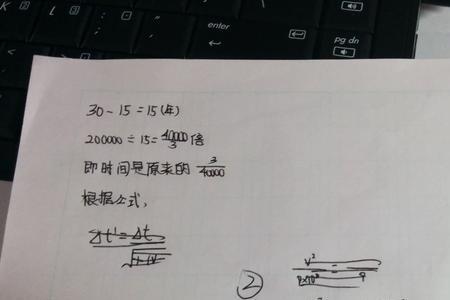 K
L
enter
pg dn
30-15=15(年)
200000÷15=40000/3倍
即时间是原来的 3/40000
根据公式,
Δt'=Δt
②
v²